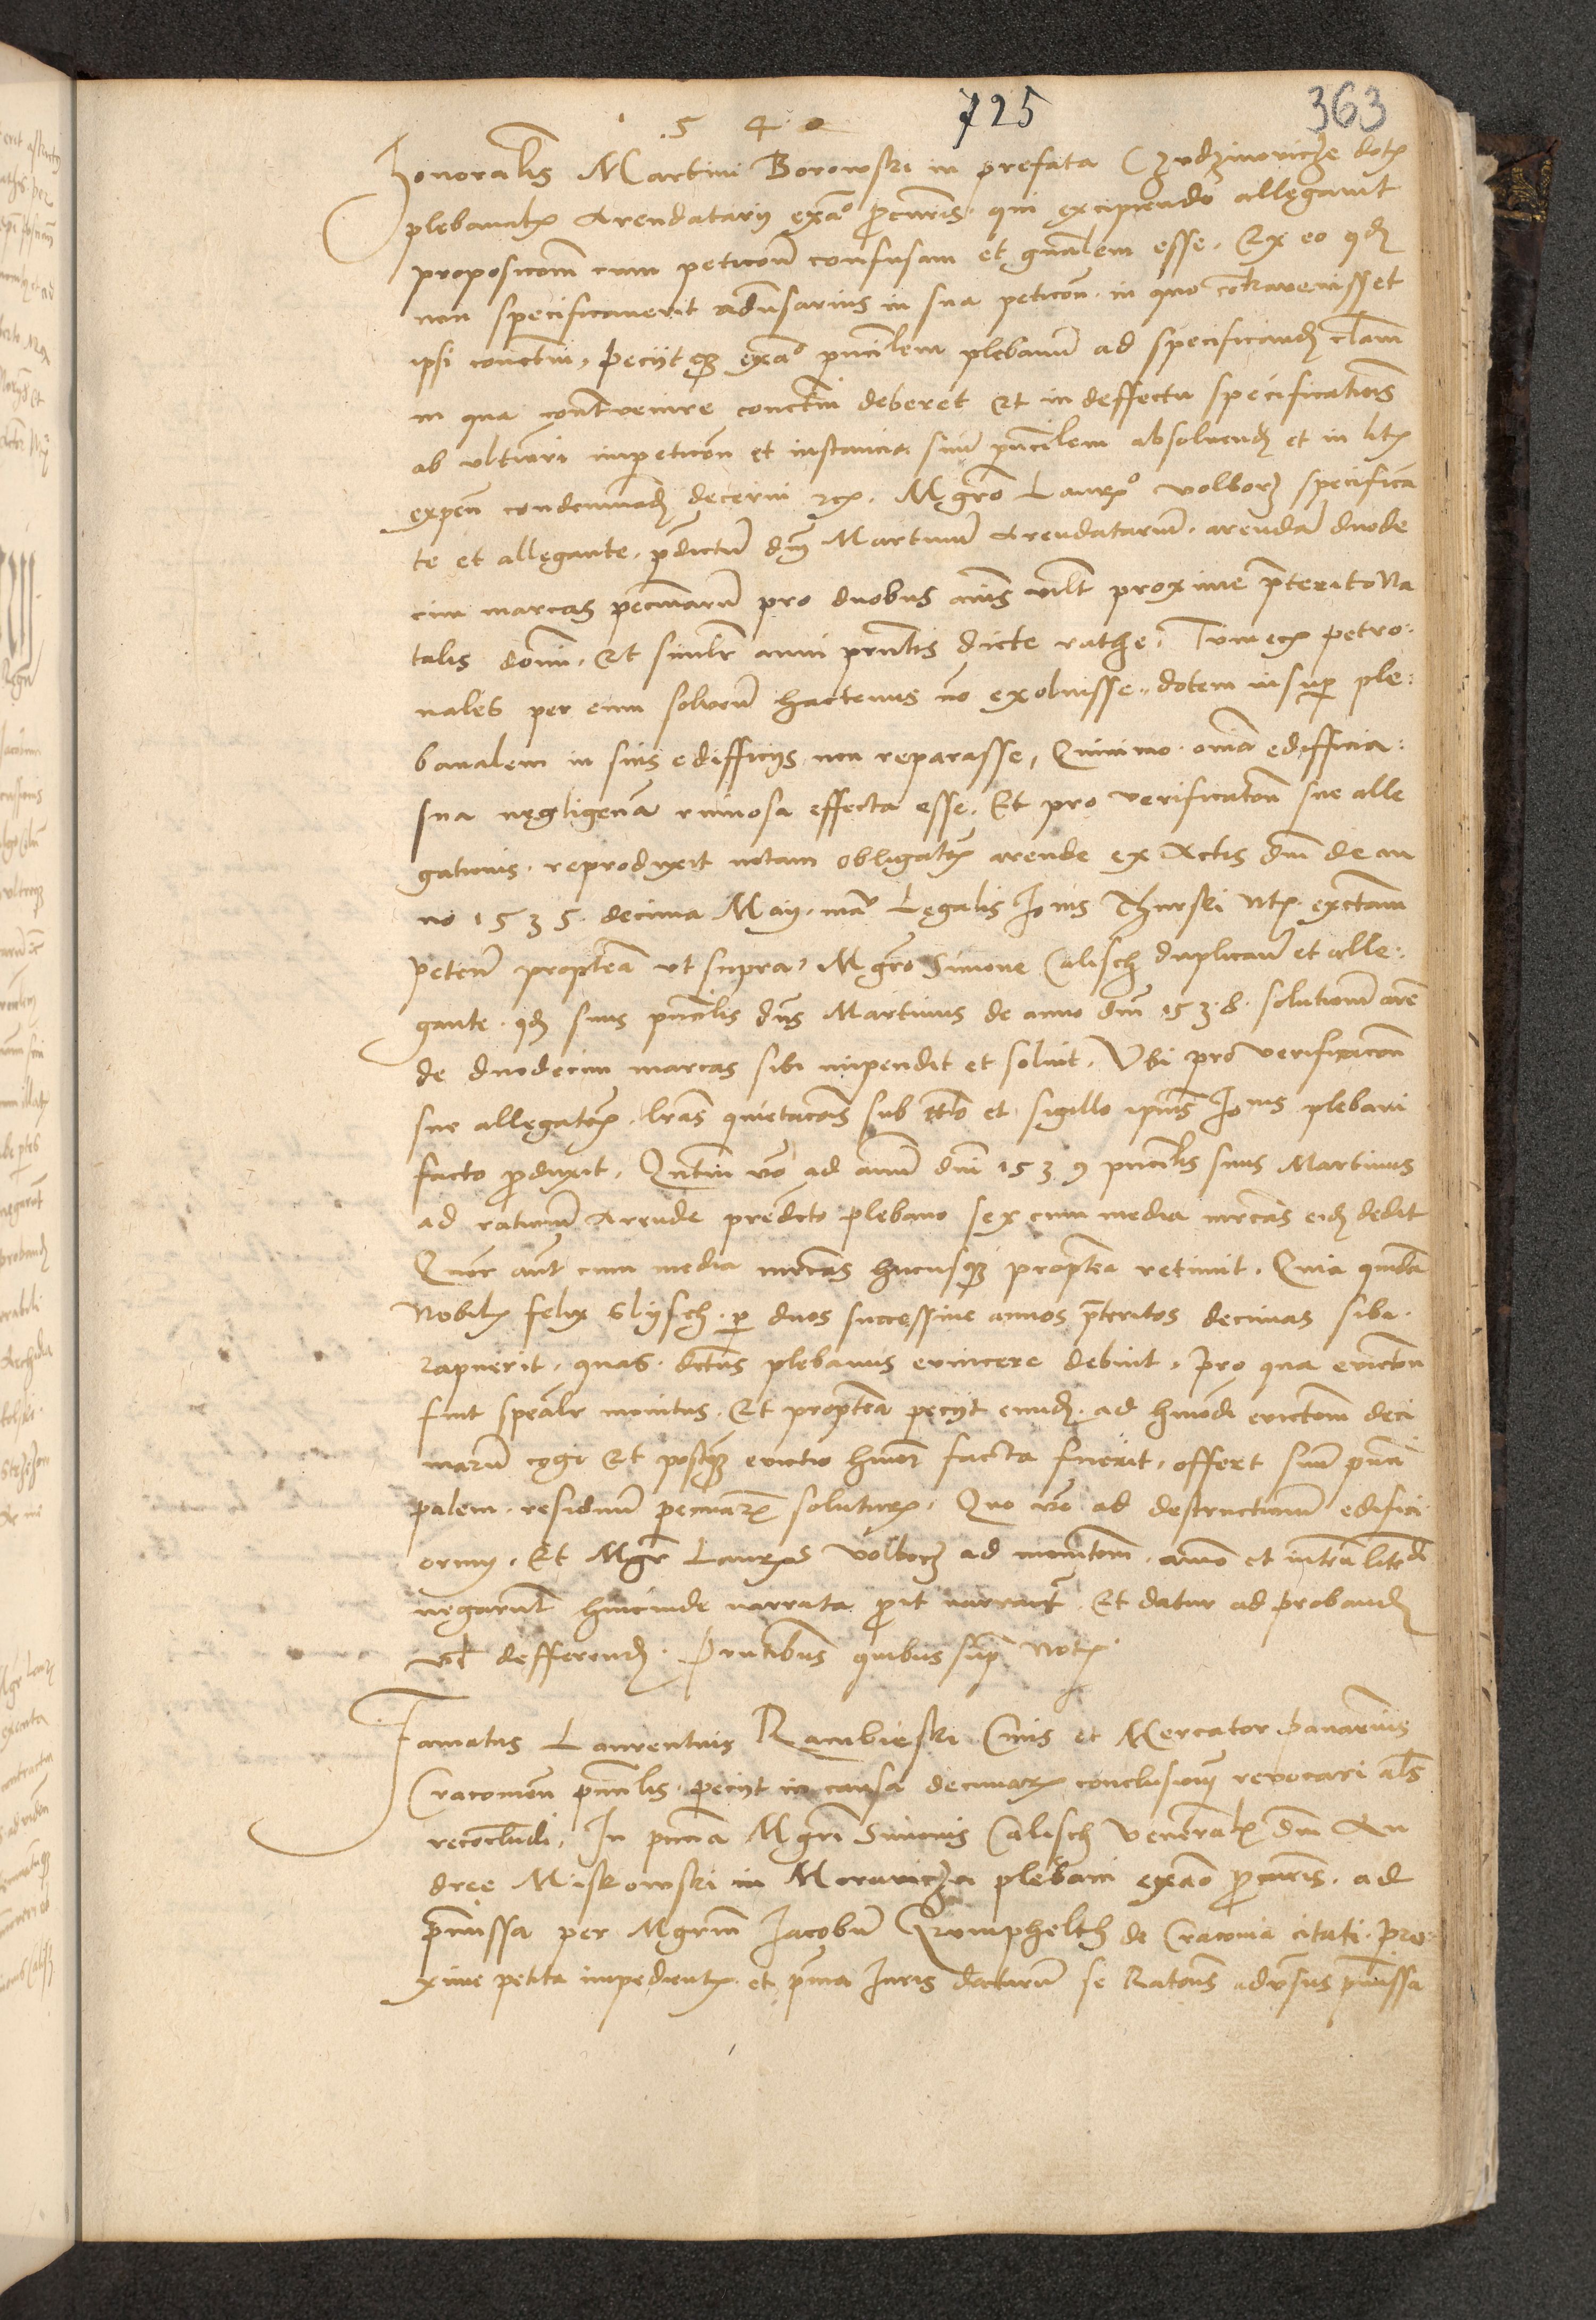 1 5 4 0 725 363
honorabilis Martini Borowski in prefata Czudzinovicze dotis
plebanalis Arendatarii exacto procuratoris qui excipiendo allegavit
propositionem cum peticone confusam et generalem esse. Ex eo quod
non specificaverit adversarius in sua peticone in quo contravenisset
ipsi contractui, peciitque exacto principalem plebanum ad specificandam clausulam
in qua contravenire contractui deberet et in deffectu specificationis
ab ulteriori impeticone et instancia suum principalem absolvendum et in litis
expensis condemnandum decerni etc. Magistro Laurentio Volborz specifican
te et allegante, predictum dominum Martinum Arendatarium arendam duode
cim marcas pecuniarum pro duobus annis videlicet proxime preterito Na
talis domini, et similiter anni presentis dicte rathe, Tum etiam petro
nales per eum solvendum hactenus non exolvisse, dotem insuper ple
banalem in suis edifficiis non reparasse, Quinimo omnia edifficia
sua negligencia ruinosa effecta esse. Et pro verificatione sue alle
gationis reproduxit notam obligationis arende ex Actis domini de an
no 1535 decima Maii manu Legalis Joannis Thurski notarii extractam
petendum propterea ut supra. Magistro Simone Calisch duplicante et alle
gante quod suus principalis dominus Martinus de anno domini 1538 solutionem aren
de duodecim marcas sibi impendit et solvit. Ubi pro verificatione
sue allegationis literas quietacionis sub titulo et sigillo ipsius Joannis plebani
facto produxit. Quantum vero ad annum domini 1539 principalis suus Martinus
ad rationem Arende predicto plebano sex cum media marcas eidem dedit
Quinque autem cum media marcas hucusque propterea retinuit. Quia quidam
Nobilis felix Slysch per duos successive annos preteritos decimas sibi
rapuerit, quas dictus plebanus evincere debuit. pro qua evictione
fuit specialiter monitus. Et propterea peciit eundem ad huiusmodi evictionem deci
marum cogi Et postquam evictio huiusmodi facta fuerit, offert suum princi
palem residuum pecuniarum soluturum. Quo vero ad destructionem edifici
orum. Et Magister Laurentius Volborz ad monitionem animo et intencione litem
negarunt hincinde narrata prout narrantur. Et datur ad probandum
vel defferendum. Presentibus quibus supra Notario
Famatus Laurentius Rambieski Civis et Mercator pannarius
Cracoviensis principalis peciit in causa decimarum conclusionem revocari alias
reconcludi. In presencia Magistri Simonis Calisch Venerabilis domini An
dree Miskowski in Moravicza plebani exacto procuratoris. ad
premissa per Magistrum Jacobum Grumphelth de Cracovia citati pro
xime petita impedientis et prima Juris dicturum se Rationes adversus premissa